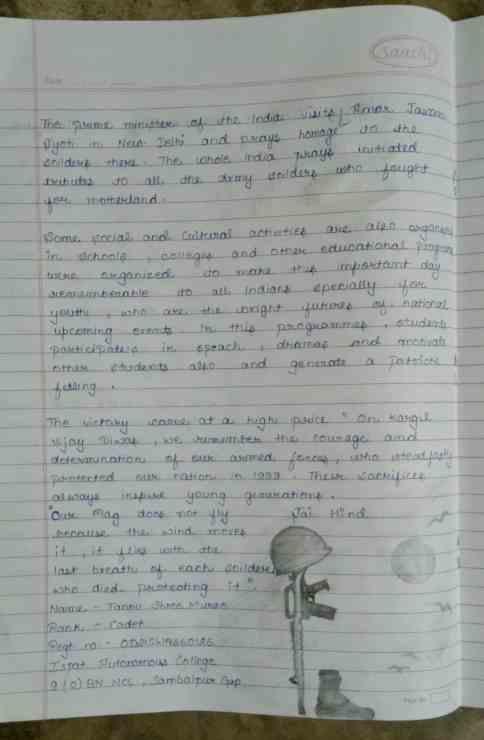 Saachi
Date
The prime minister of the India visits Amar Jawan
Jyoti in New Delhi and prays homage to the
soilders there. The whole India prays initiated
tribute to all the army soilders who fought
for motherland.
Some social and cultural activities are also organised
in schools, colleges and other educational program
were organized to make this important day
rememberable to all Indians especially for
youth, who are the bright futures of national
upcoming events in this programmes. students
participates in speach, dramas and motivate
other students also and generate a Patriotic
felling.
The victory came at a high price " On Kargil
Vijay Diwas, we remember the courage and
determination of our armed forces, who steadfastly
protected our nation in 1999. Their sacrifices
always inspire young generations.
"Our flag does not fly Jai Hind
because the wind moves
it, it flies with the
last breath of each soilder
who died protecting it".
Name - Tannu Shree
Rank - Cadet
Regt no -
Ispat Autonomous College
9 (O) BN NCC, Sambalpur Gp.
Page No.